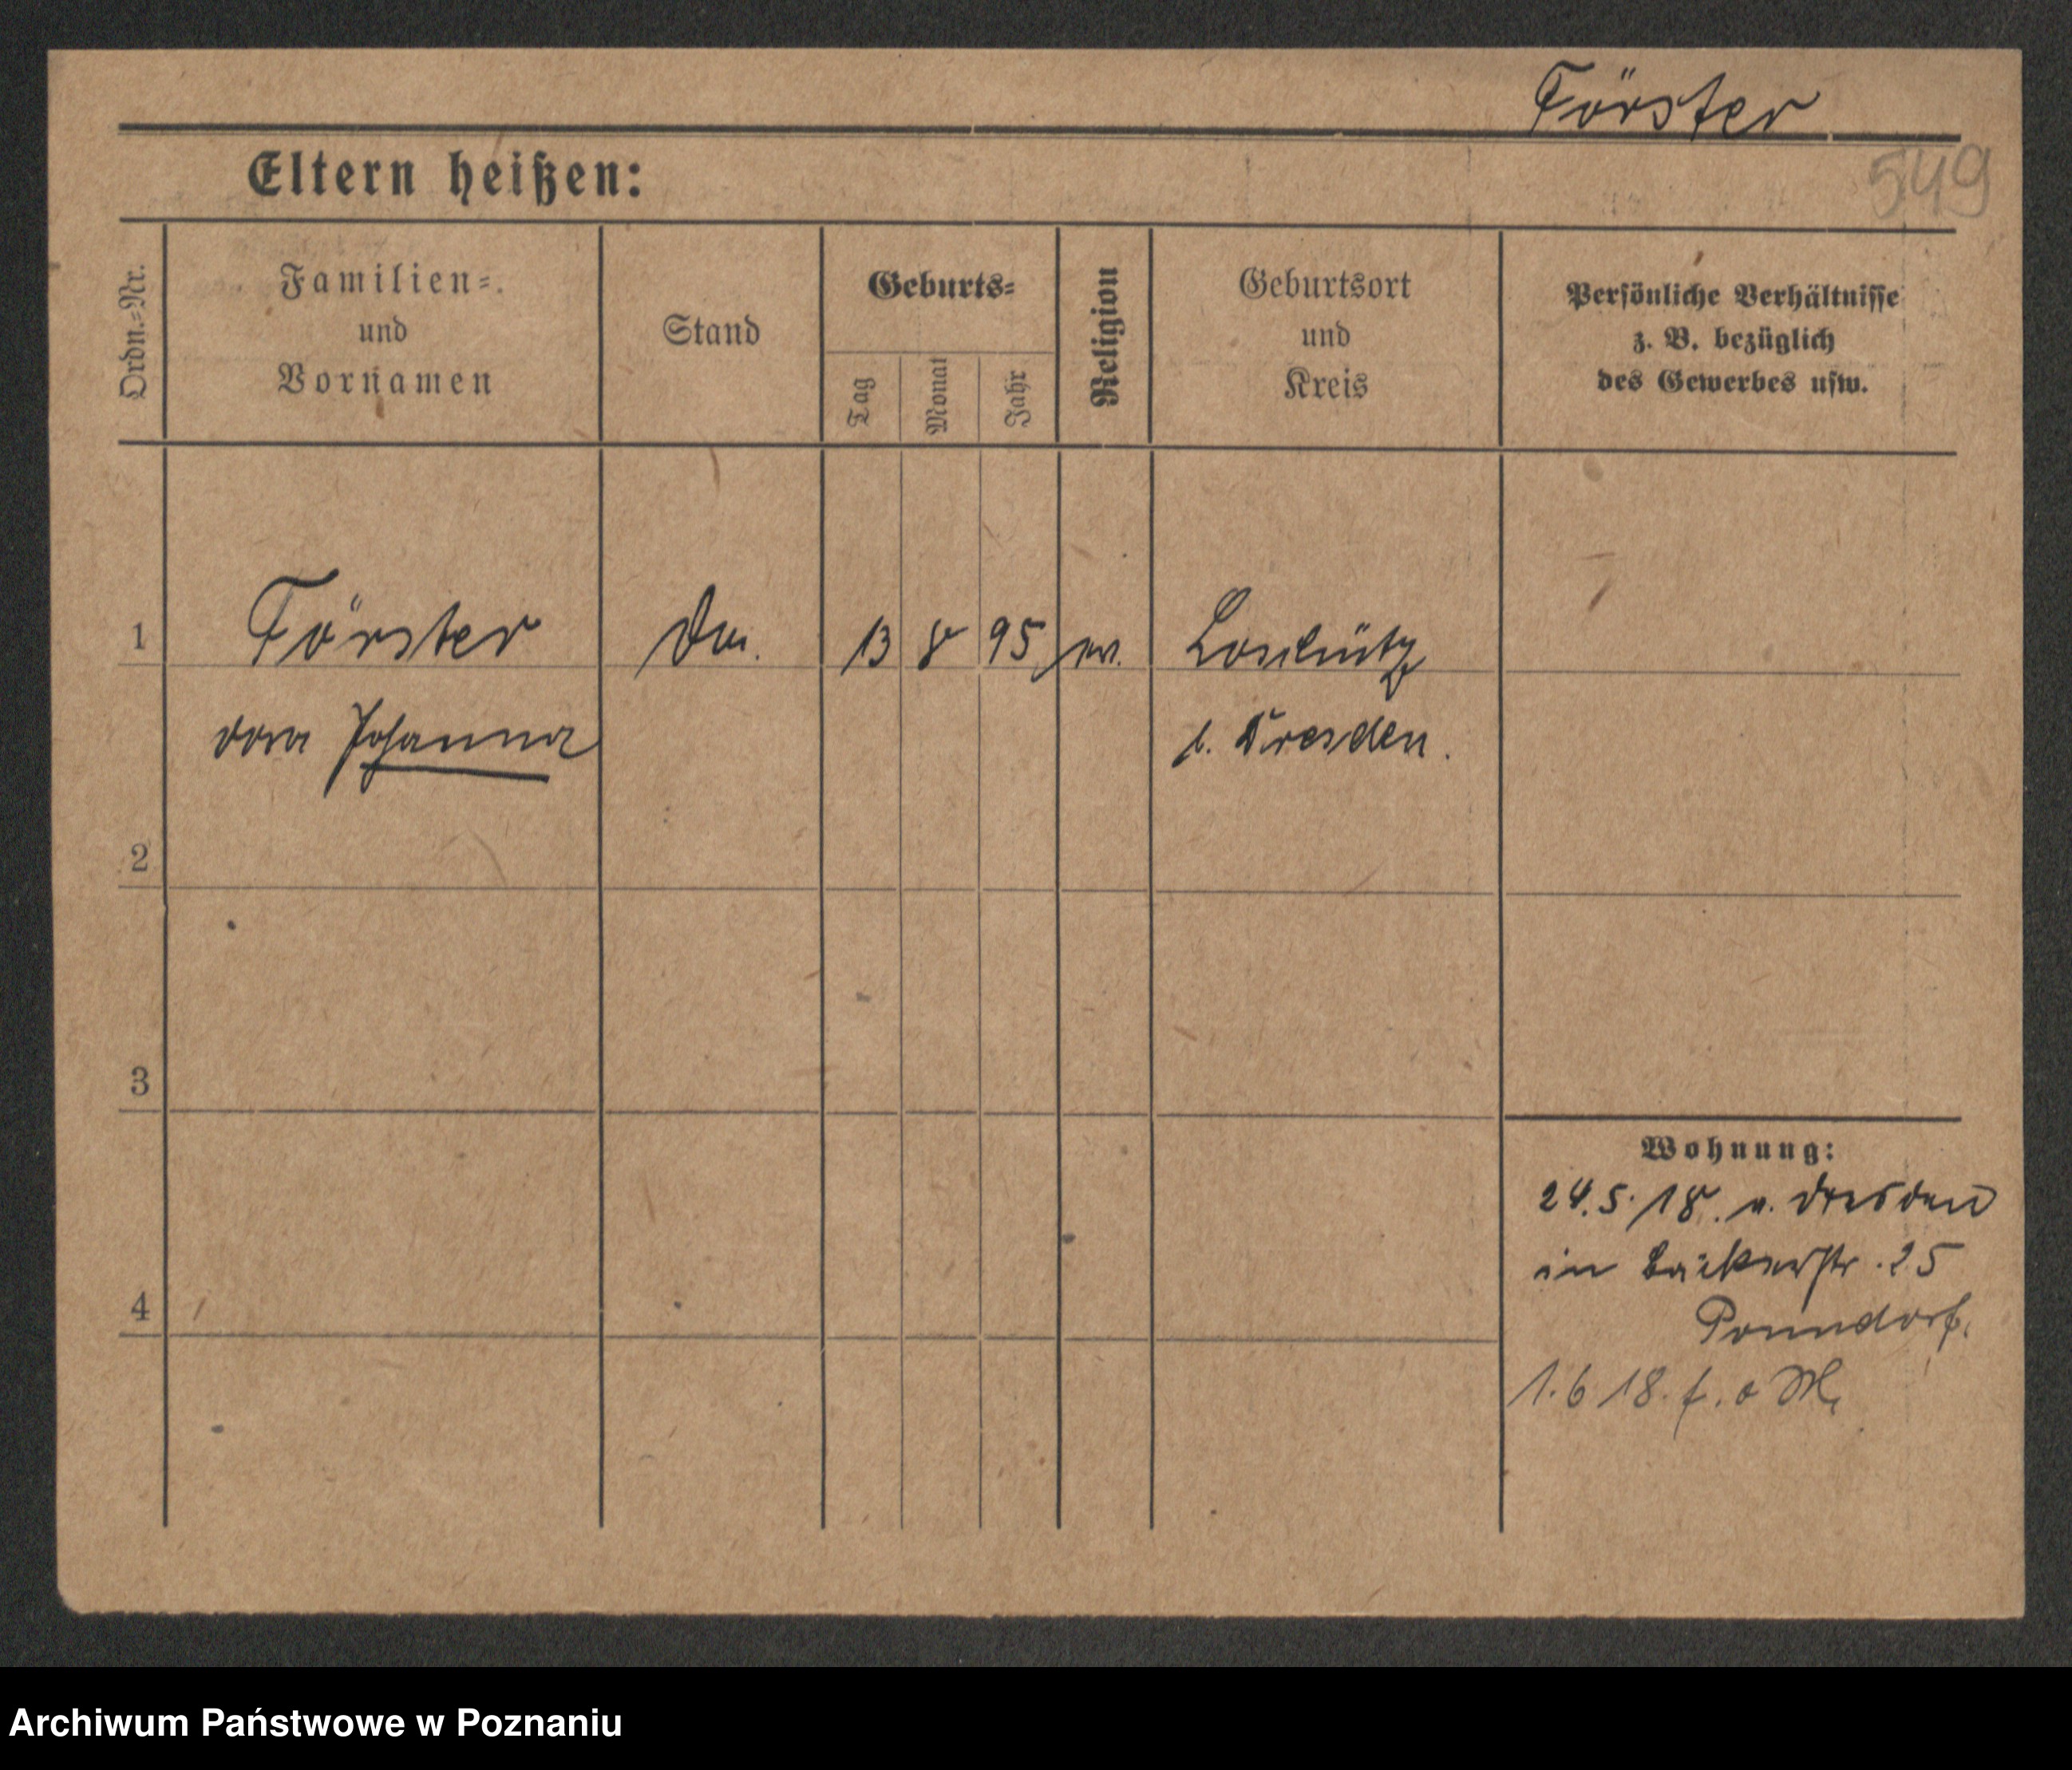 Förster
549
Eltern heißen:
Ordn.=Nr.
Familien=
und
Vornamen
Stand
Geburts=
Tag
Monat
Jahr
Religion
Geburtsort
und
Kreis
Persönliche Verhältnisse
z. B. bezüglich
des Gewerbes usw.
1
Förster
13 8 95 ev.
Loschütz
Johanna
b. Dresden.
2
3
4
Wohnung:
24.5.18. v. Dresden
in Bäckerstr. 25
Ponndorf.
1.6 18. f. a M.
Archiwum Państwowe w Poznaniu